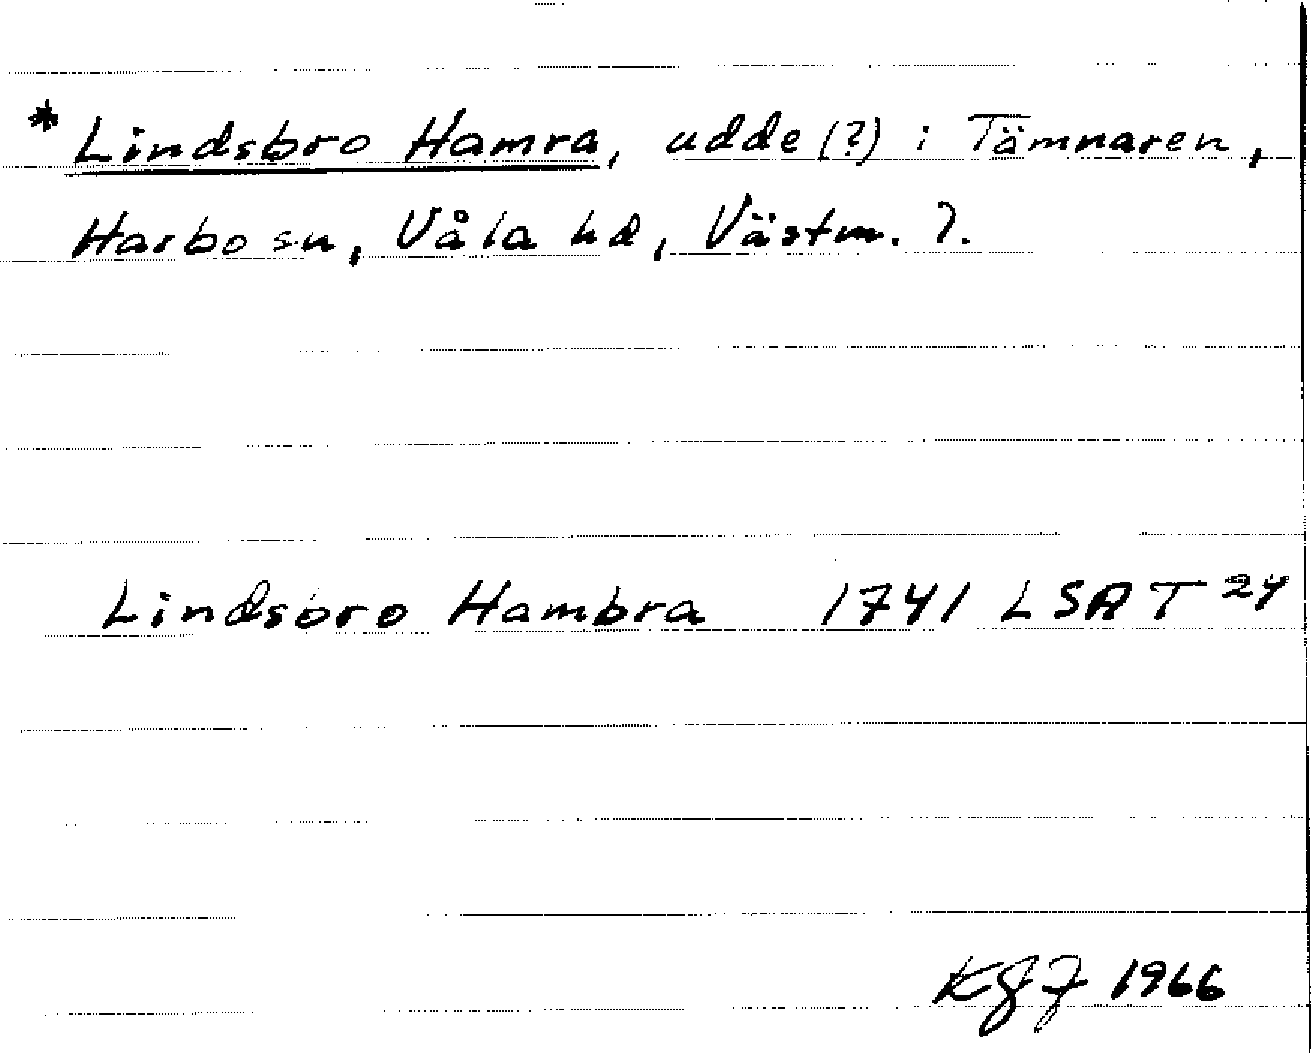 * Lindsbro Hamra, udde (?) i Tämnaren,
Harbo sn, Våla hd, Västm. ?.
Lindsbro Hambra 1741 LSA T 24
KGJ 1966